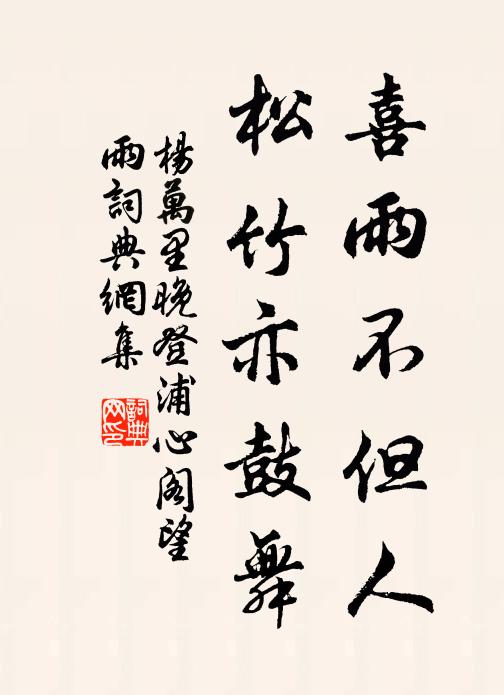 喜雨不但人
松竹亦鼓舞
楊萬里晚登浦心阁望
雨詞典網集
詞典網印